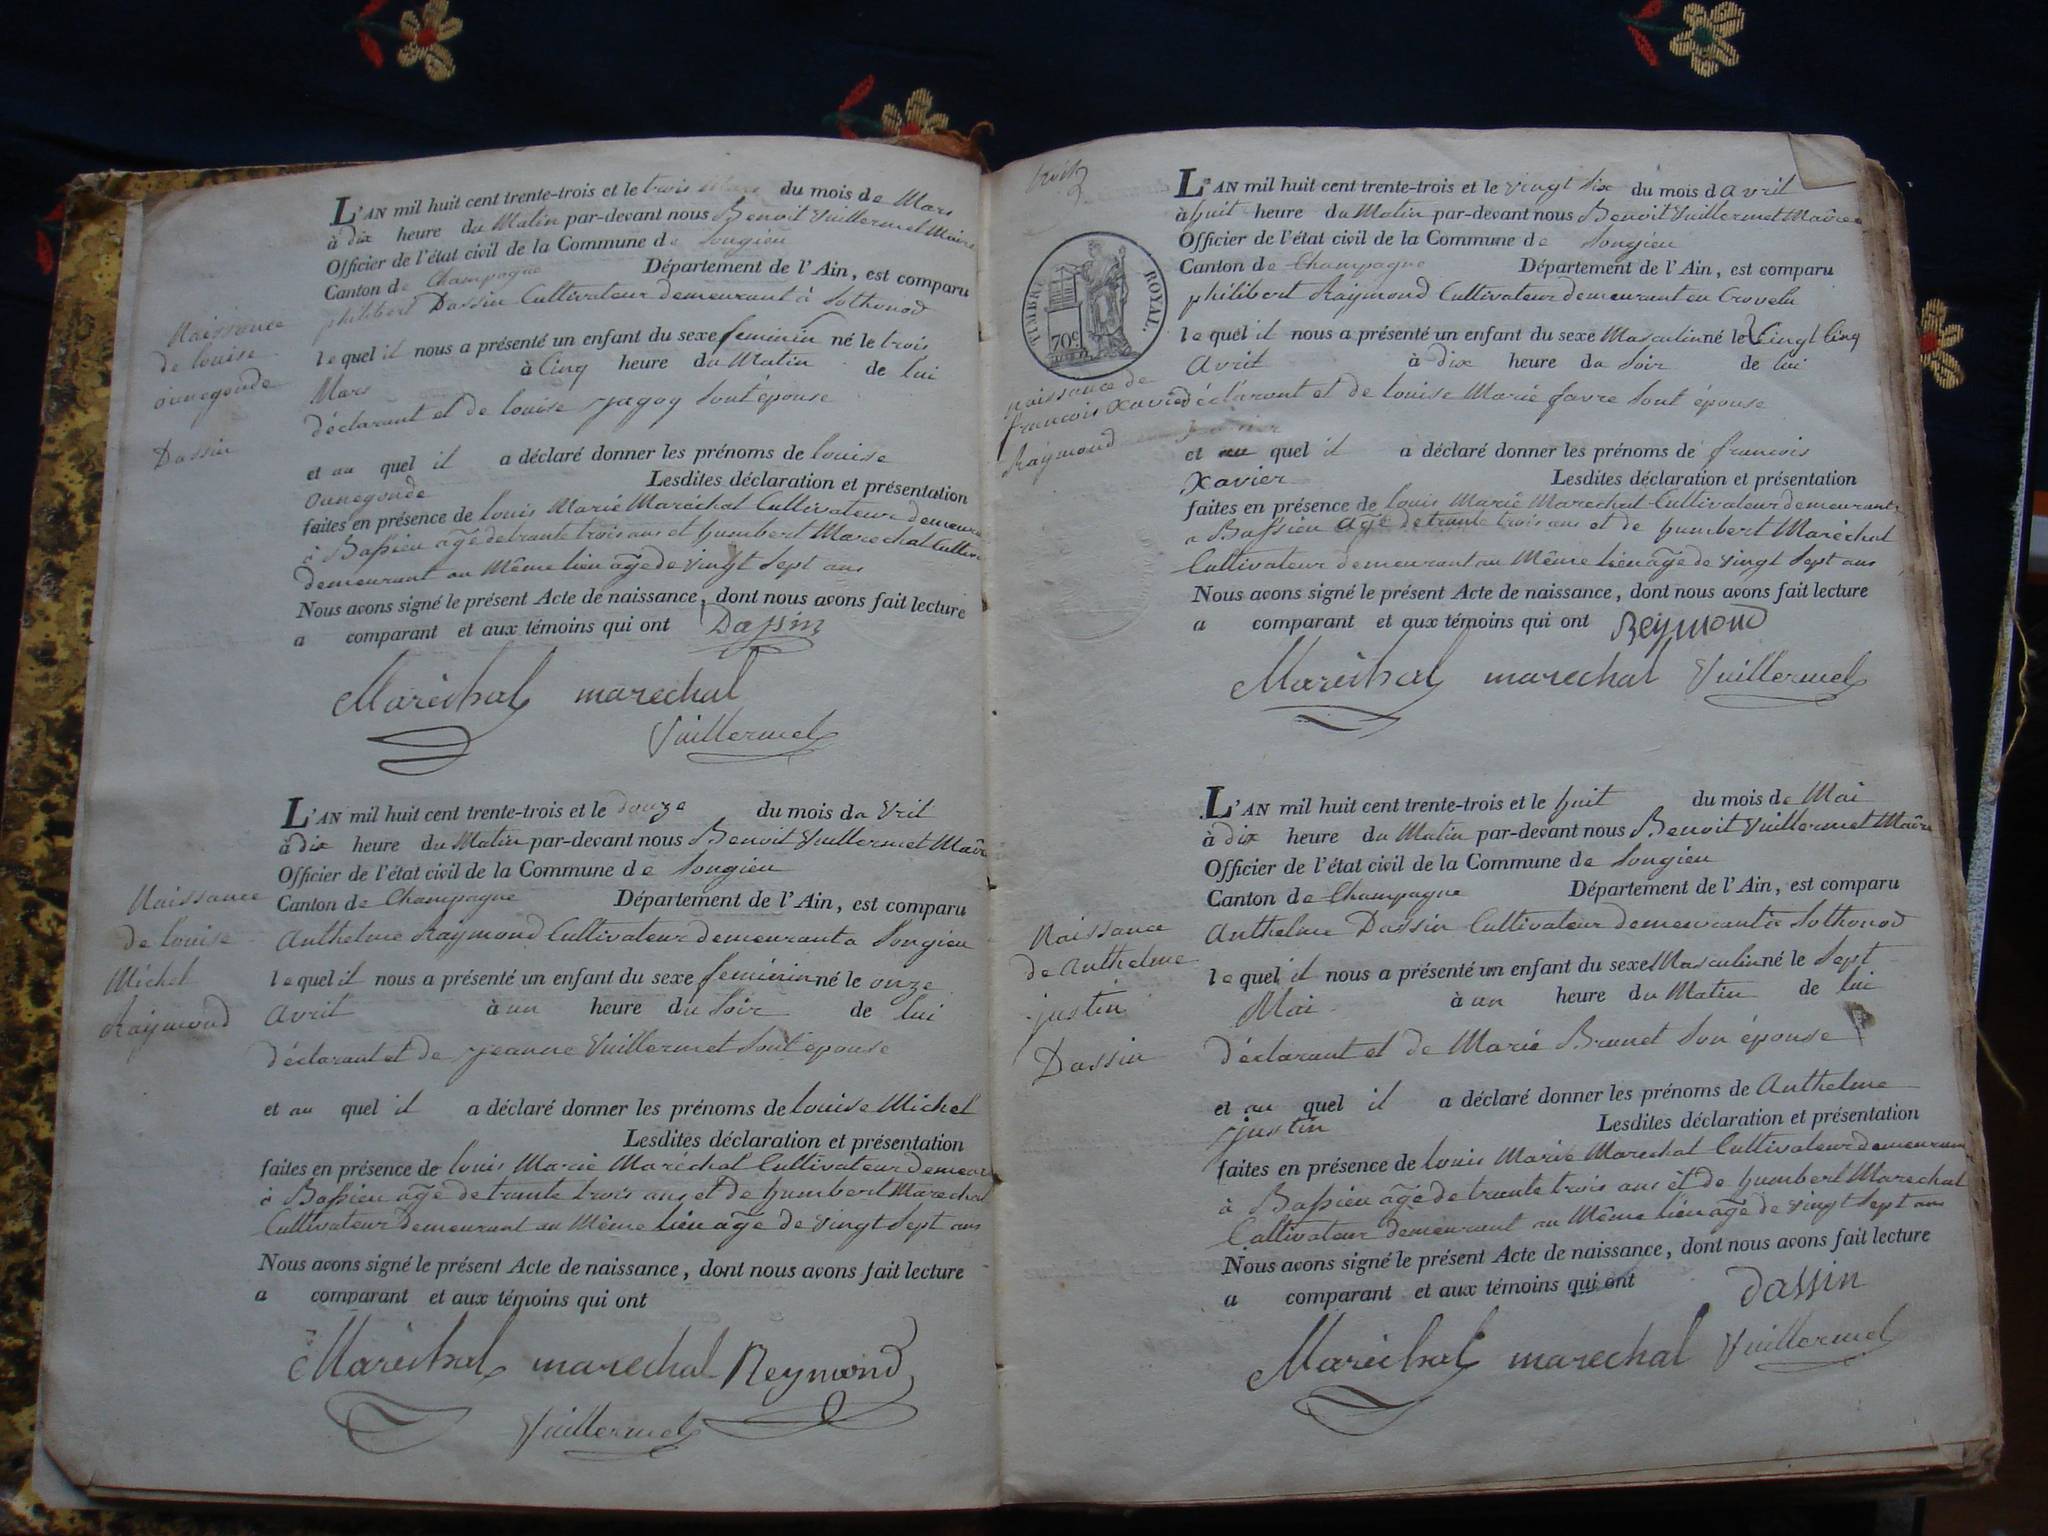 Naissance
de louise
cunegonde
Dassin
L'AN mil huit cent trente-trois et le trois du mois de Mars
à dix heure du Matin par-devant nous Benoit Vuillermet Maire
Officier de l'état civil de la Commune de Songieu
Canton de Champagne Département de l'Ain, est comparu
philibert Dassin Cultivateur demeurant à Sothonod
lequel il nous a présenté un enfant du sexe feminin né le trois
Mars à Cinq heure du Matin de lui
déclarant et de louise sont épouse
et au quel il a déclaré donner les prénoms de louise
cunegonde Lesdites déclaration et présentation
faites en présence de louis Marie Maréchal Cultivateur demeura
à Bassieu agé de trante trois ans et humbert Marechal Cultiv
demeurant au Même lieu agé de vingt Sept ans
Nous avons signé le présent Acte de naissance, dont nous avons fait lecture
a comparant et aux témoins qui ont Dassin
Maréchal marechal
Vuillermet
Naissance
de louise
Michel
Raymond
L'AN mil huit cent trente-trois et le douze du mois da Vril
à dix heure du Matin par-devant nous Benoit Vuillermet Maire
Officier de l'état civil de la Commune de Songieu
Canton de Champagne Département de l'Ain, est comparu
Anthelme Raymond Cultivateur demeurant a Songieu
lequel il nous a présenté un enfant du sexe feminin né le onze
Avril à un heure du Soir de lui
déclarant et de jeanne Vuillermet Sont épouse
et au quel il a déclaré donner les prénoms de louise Michel
Lesdites déclaration et présentation
faites en présence de louis Marie Maréchal Cultivateur demeur
à Bassieu agé de trante trois ans et de humbert Marechal
Cultivateur demeurant au Même lieu agé de vingt Sept ans
Nous avons signé le présent Acte de naissance, dont nous avons fait lecture
a comparant et aux témoins qui ont
Maréchal marechal Reymond
Vuillermet
TIMBRE ROYAL.
70c
naissance de
francois Xavier
Raymond
L'AN mil huit cent trente-trois et le vingt Six du mois d avril
à huit heure du Matin par-devant nous Benoit Vuillermet Maire
Officier de l'état civil de la Commune de Songieu
Canton de Champagne Département de l'Ain, est comparu
philibert Raymond Cultivateur demeurant en Crovelu
lequel il nous a présenté un enfant du sexe Masculin né le Vingt Cinq
Avril à dix heure du Soir de lui
déclarant et de louise Marie favre Sont épouse
et au quel il a déclaré donner les prénoms de francois
Xavier Lesdites déclaration et présentation
faites en présence de louis Marie Marechal Cultivateur demeurant
a Bassieu agé de trante trois ans et de humbert Maréchal
Cultivateur demeurant au Même lieu agé de vingt Sept ans
Nous avons signé le présent Acte de naissance, dont nous avons fait lecture
a comparant et aux témoins qui ont Reymond
Maréchal marechal Vuillermet
Naissance
de Anthelme
justin
Dassin
L'AN mil huit cent trente-trois et le huit du mois de Mai
à dix heure du Matin par-devant nous Benoit Vuillermet Maire
Officier de l'état civil de la Commune de Songieu
Canton de Champagne Département de l'Ain, est comparu
Anthelme Dassin Cultivateur demeurant à Sothonod
lequel il nous a présenté un enfant du sexe Masculin né le Sept
Mai à un heure du Matin de lui
déclarant et de Marie Brunet Son épouse
et au quel il a déclaré donner les prénoms de Anthelme
justin Lesdites déclaration et présentation
faites en présence de louis Marie Marechal Cultivateur demeuran
à Bassieu agé de trante trois ans et de humbert Marechal
Cultivateur demeurant au Même lieu agé de vingt Sept ans
Nous avons signé le présent Acte de naissance, dont nous avons fait lecture
a comparant et aux témoins qui ont Dassin
Maréchal marechal Vuillermet